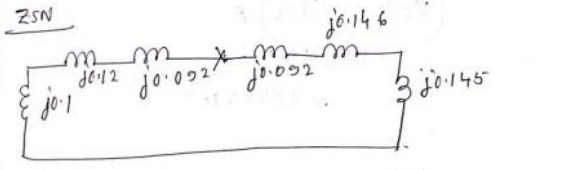 ZSN
j0.146
j0.12
j0.092
j0.092
j0.1
j0.145